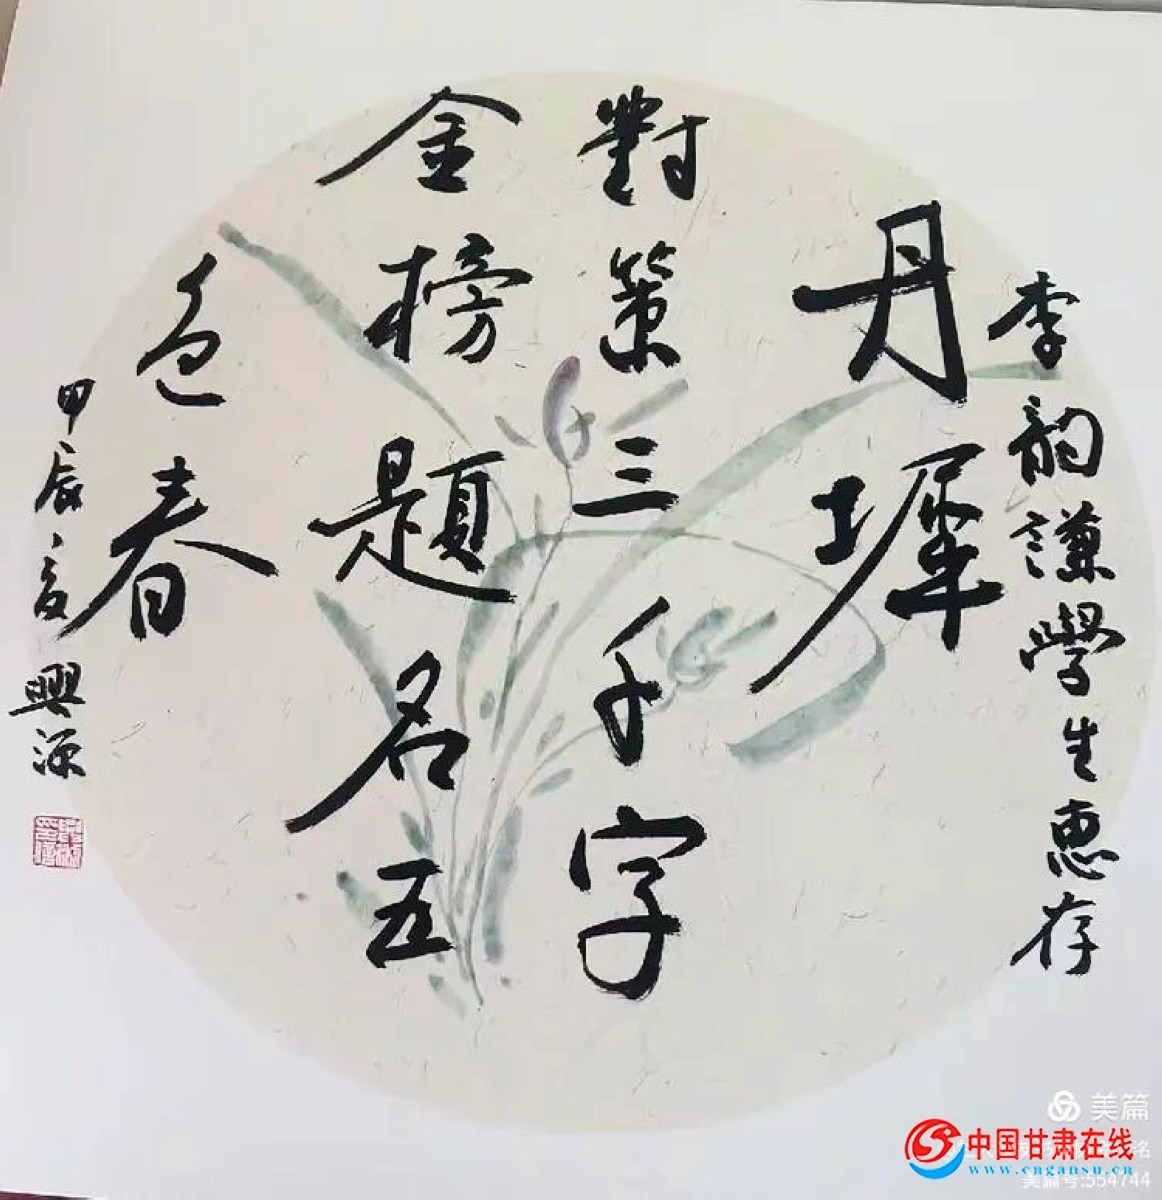 李韵謙學生惠存
丹墀
對策三千字
金榜題名五
色春
甲辰夏
興源
美篇
中国甘肃在线
www.cngansu.cn
铭
美篇号:554744